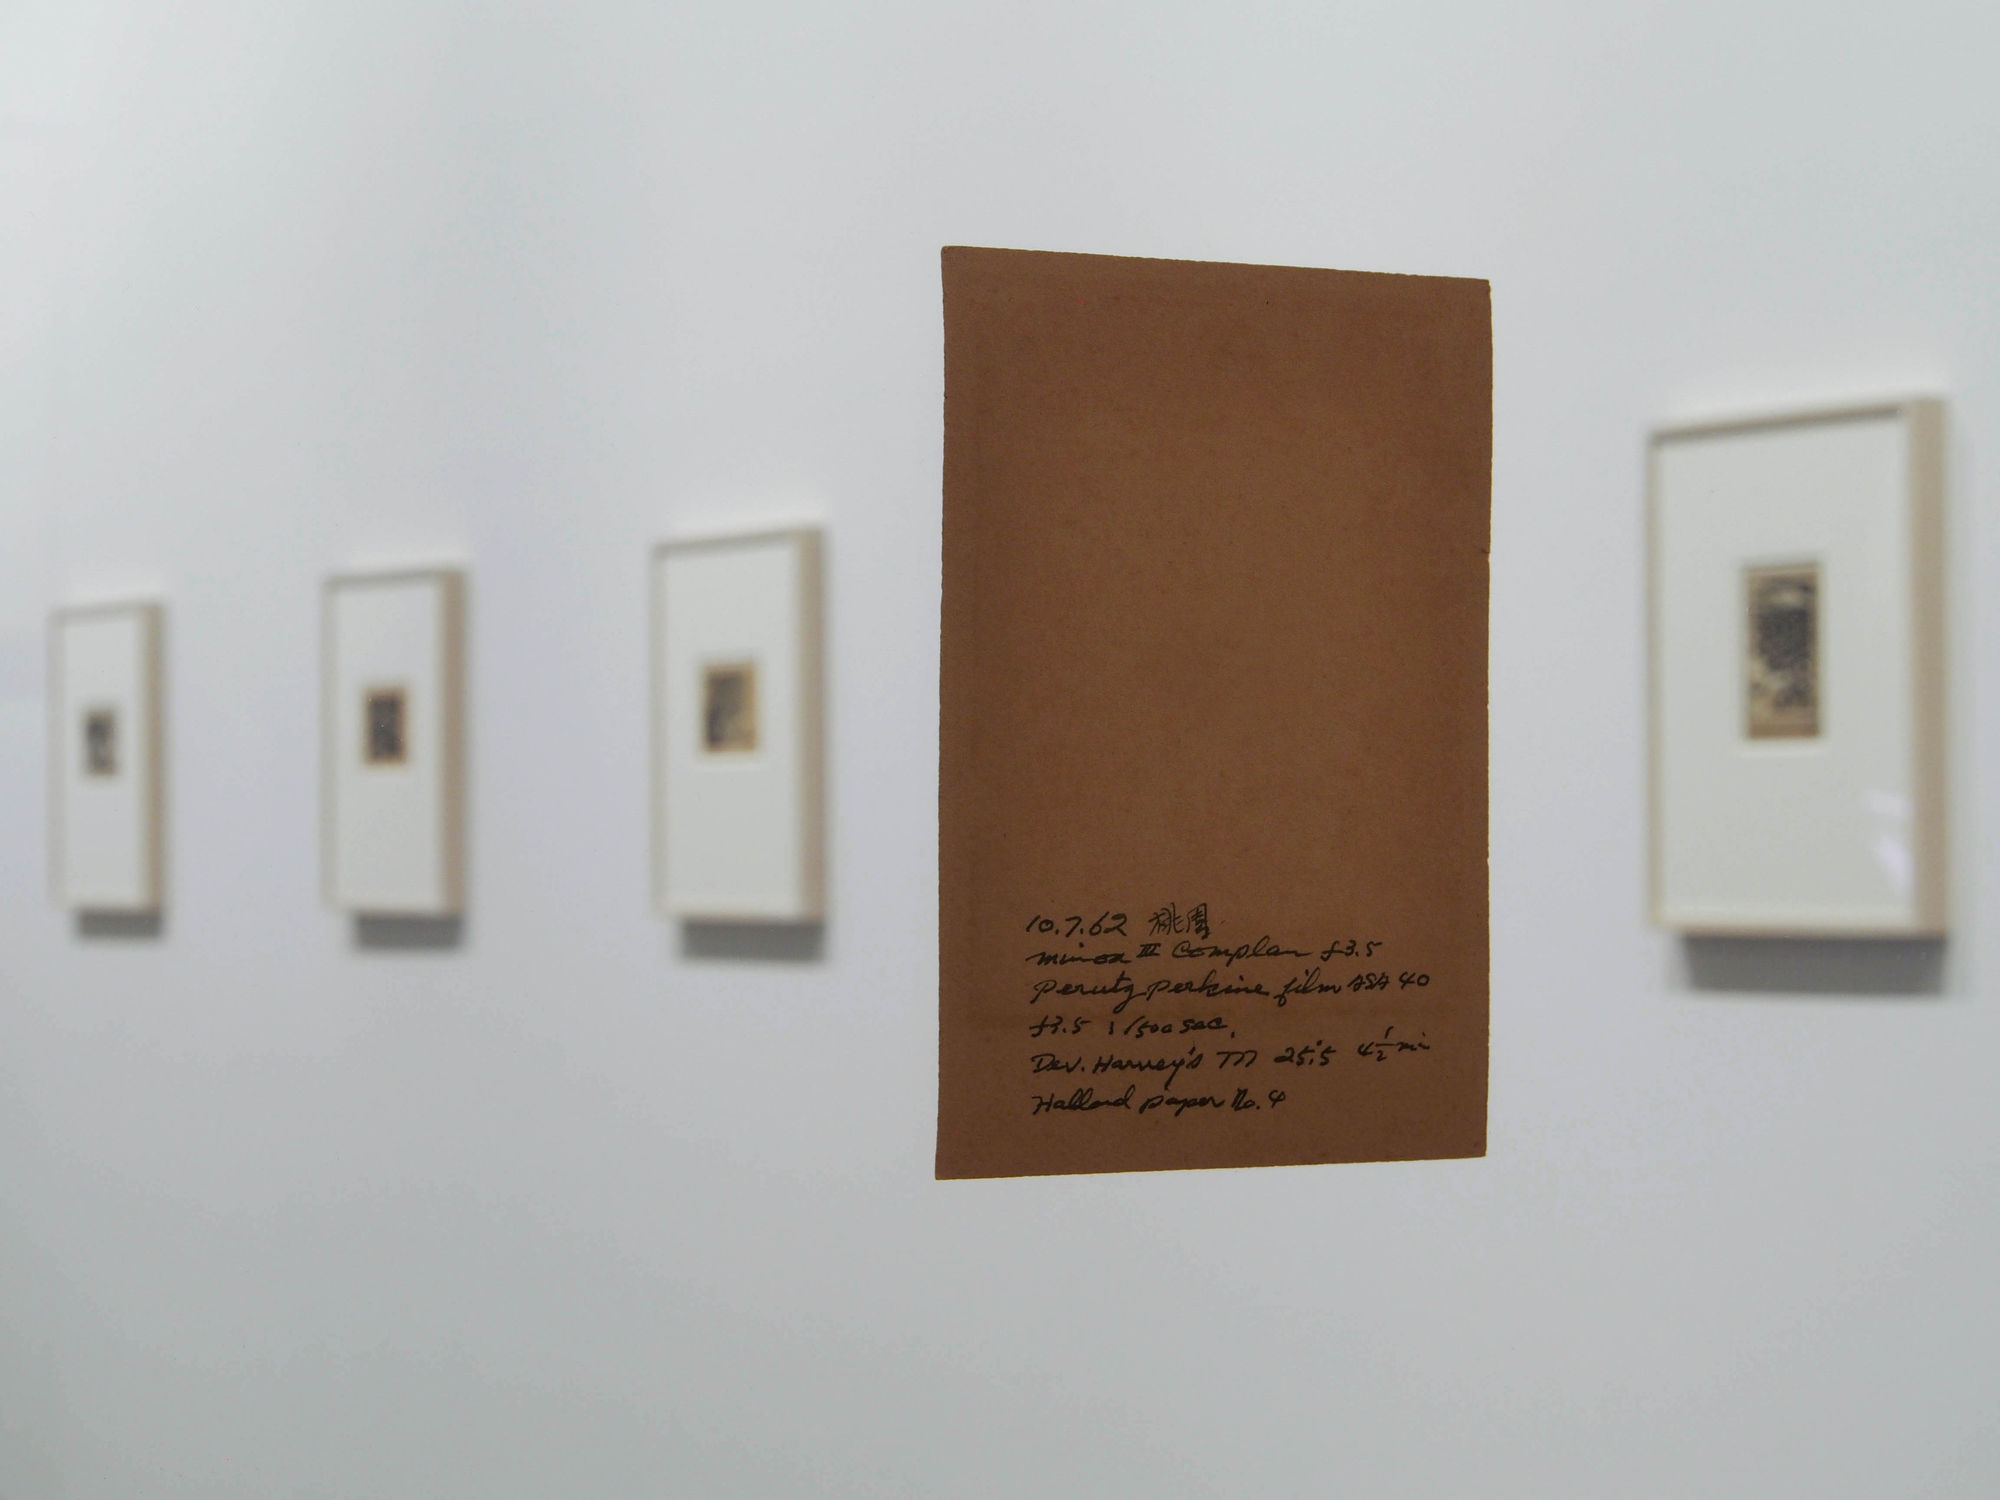 10.7.62 桃園
minox III Complan f3.5
Perutz Perkine film ASA 40
f3.5 1/500 sec.
Dev. Harvey's 777 25.5 4 1/2 min
paper No. 4